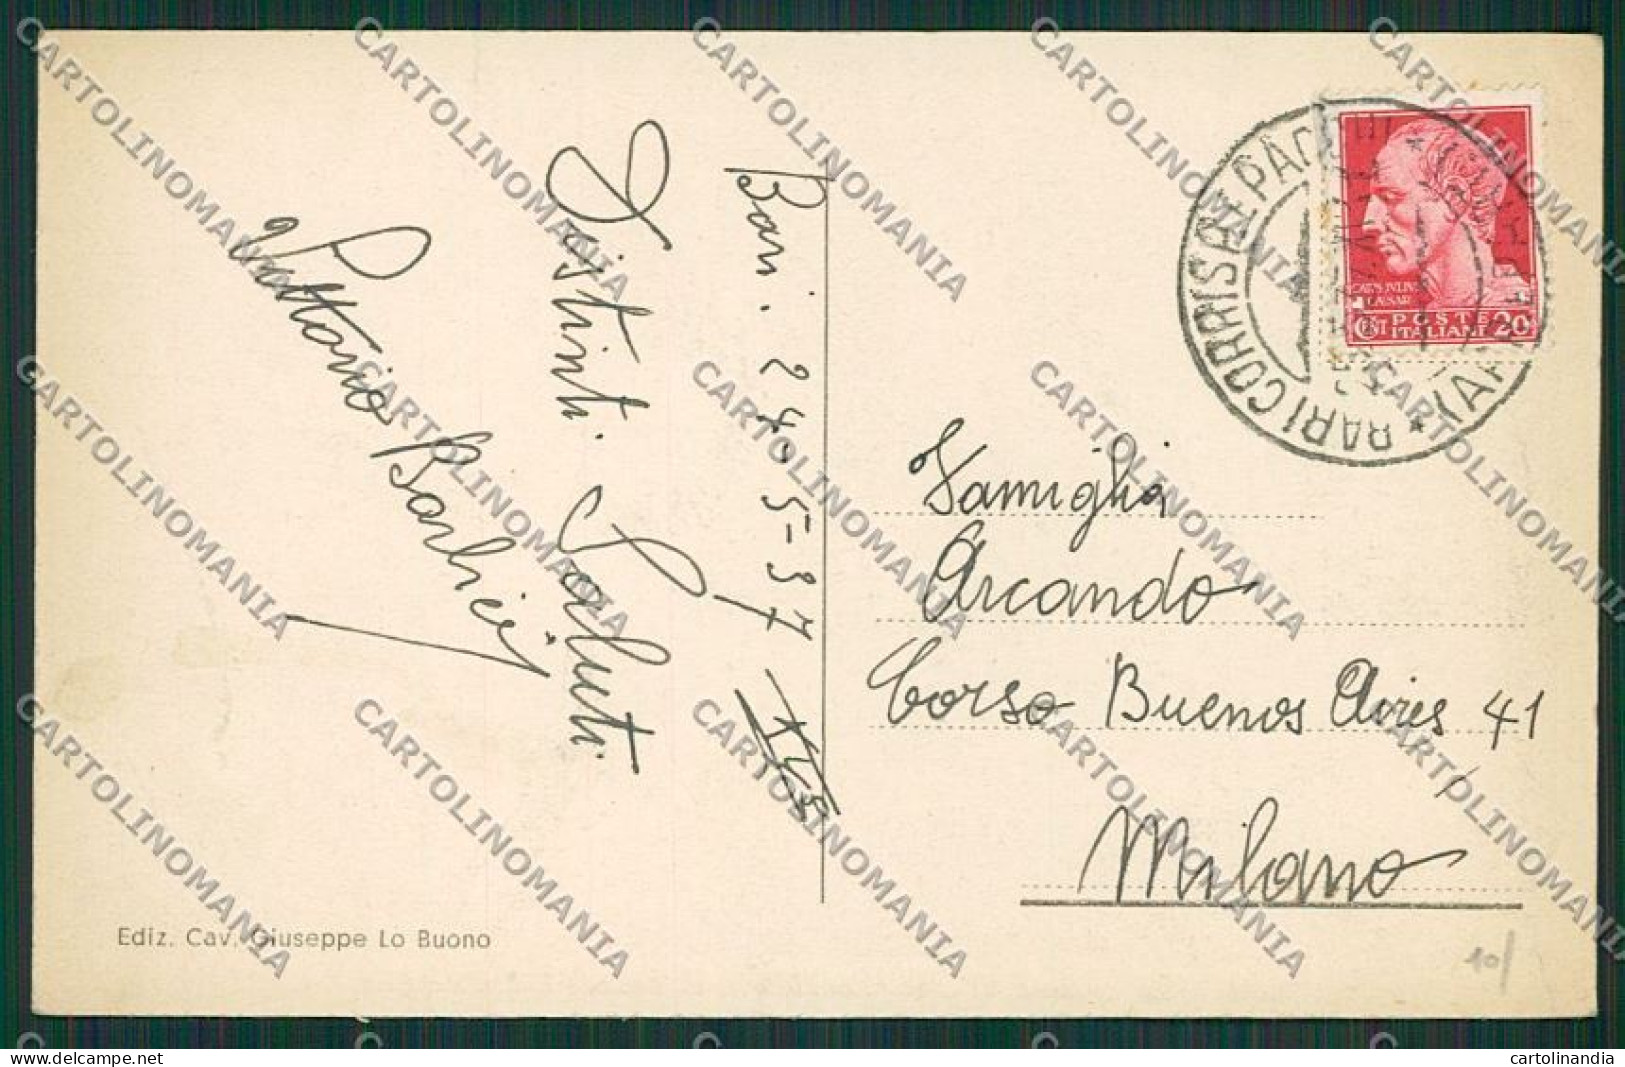 Bari. 24-5-37 XV
Distinti Saluti
Vittorio Barbieri
Famiglia
Arcando
Corso Buenos Aires, 41
Milano
Ediz. Cav. Giuseppe Lo Buono
CAIVS IVLIVS
CAESAR
CENT POSTE
ITALIANE 20
BARI CORRISP. E PACCHI
(ARRIVI
10/
CARTOLINOMANIA
cartolinomania.com
cartolinandia